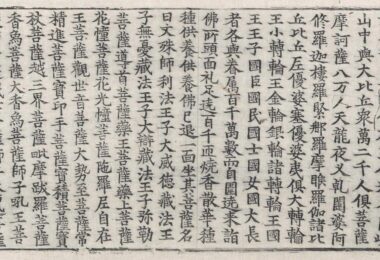 山中與大比丘衆萬二千人俱菩薩
摩訶薩八万人天龍夜叉乹闥婆阿
修羅迦樓羅緊那羅摩睺羅伽諸比
丘比丘尼優婆塞優婆夷俱大轉輪
王小轉輪王金輪銀輪諸輪王國
王王子國臣國民國士國女國大長
者各與眷屬百千萬數而自圍遶來詣
佛所頭面礼足遶百千匝燒香散華種
種供養供養佛已退一面坐其菩薩名
曰文殊師利法王子大威德藏法王
子無憂藏法王子大辯藏法王子弥勒
菩薩導首菩薩藥王菩薩藥上菩薩
花幢菩薩花光幢菩薩陁羅尼自在
王菩薩觀世音菩薩大勢至菩薩常
精進菩薩寶印手菩薩寶積菩薩寶
杖菩薩越三界菩薩毗摩跋羅菩薩
香象菩薩大香象菩薩師子吼王菩薩